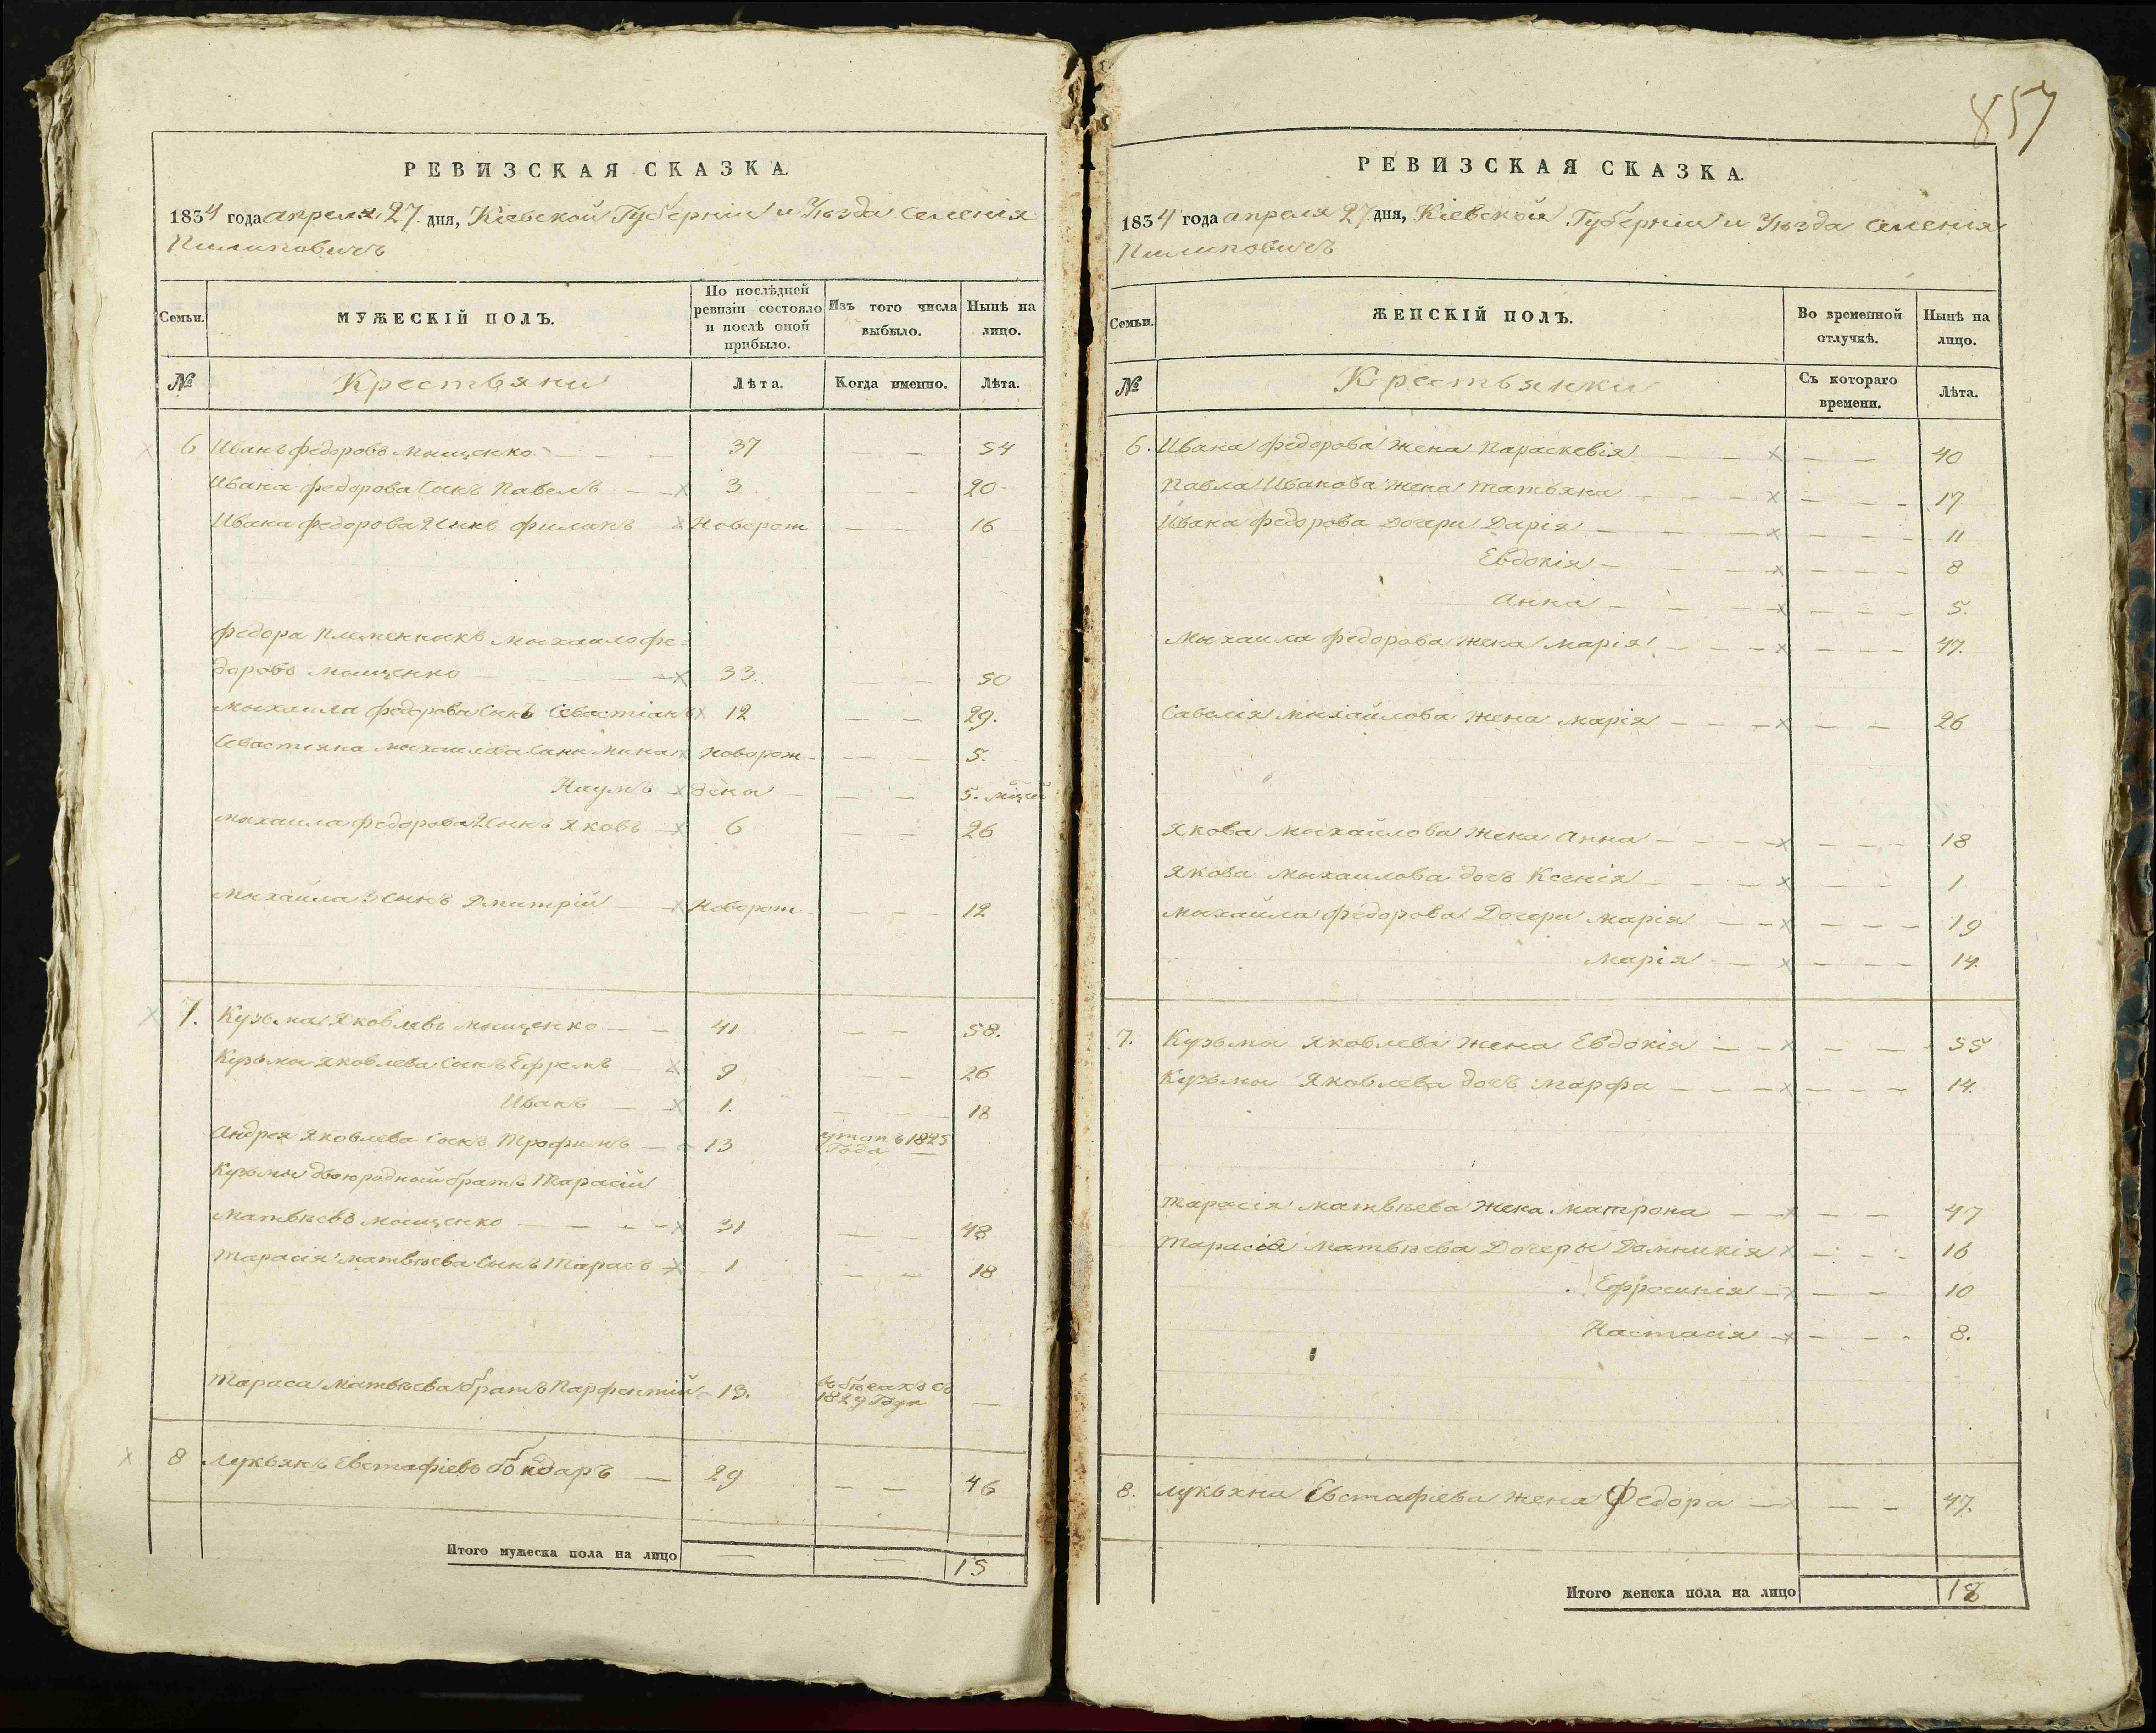 РЕВИЗСКАЯ СКАЗКА.
1834 года апреля 27 дня, Кіевской Губерніи и Уѣзда Селенія
Пилиповичъ
Семьи.
МУЖЕСКІЙ ПОЛЪ.
По послѣдней ревизіи состояло и послѣ оной прибыло.
Изъ того числа выбыло.
Нынѣ на лицо.
№
Крестьяни
Лѣта.
Когда именно.
Лѣта.
6 Иванъ Федоровъ Мищенко 37 — — 54
Ивана Федорова Сынъ Павелъ 3 — — 20
Ивана Федорова 2 Сынъ Филипъ Новорож — — 16
Федора племенникъ Михаило Фе=
доровъ Мищенко 33. — — 50
Михаила Федорова Сынъ Севастіанъ 12 — — 29.
Севастіяна Михаилова Сыни Мина Новорож- — — 5.
Наумъ дени — — 5. мѣсей
Михаила Федорова 2 Сынъ Яковъ 6 — — 26
Михаила 3 Сынъ Дмитрій Новорож — — 12
7. Кузьма Яковлевъ Мищенко 41 — — 58.
Кузьмы Яковлева Сынъ Ефремъ 9 — — 26
Иванъ 1. — — 18
Андрея Яковлева Сынъ Трофимъ 13 утопъ 1825 Года
Кузьмы двоюродный братъ Тарасій
Матвѣевъ Мищенко 31 — — 48
Тарасія Матвѣева Сынъ Тарасъ 1 — — 18
Тараса Матвѣева братъ Парфентій 13. въ бѣгахъ съ 1829 Года —
8 Лукьянъ Евстафіевъ Бондаръ 29 — — 46
Итого мужеска пола на лицо — — 15
857
РЕВИЗСКАЯ СКАЗКА.
1834 года апреля 27 дня, Кіевской Губерніи и Уѣзда Селенія
Пилиповичъ
Семьи.
ЖЕНСКІЙ ПОЛЪ.
Во временной отлучкѣ.
Нынѣ на лицо.
№
Крестьянки
Съ котораго времени.
Лѣта.
6. Ивана Федорова Жена Параскевія — — 40
Павла Иванова Жена Татьяна — — 17
Ивана Федорова Дочери Дарія — — 11
Евдокія — — 8
Анна — — 5.
Михаила Федорова Жена Марія — — 47.
Савелія Михайлова Жена Марія — — 26
Якова Михайлова Жена Анна — — 18
Якова Михаилова дочь Ксенія — — 1
Михайла Федорова Дочери Марія — — 19
Марія — — 14.
7. Кузьмы Яковлева Жена Евдокія — — 55
Кузьмы Яковлева дочь Марфа — — 14.
Тарасія Матвѣева Жена Матрона — — 47
Тарасія Матвѣева Дочеры Домникія — — 16
Ефросинія — — 10
Настасія — — 8.
8. Лукьяна Евстафіева Жена Федора — — 47.
Итого женска пола на лицо 18